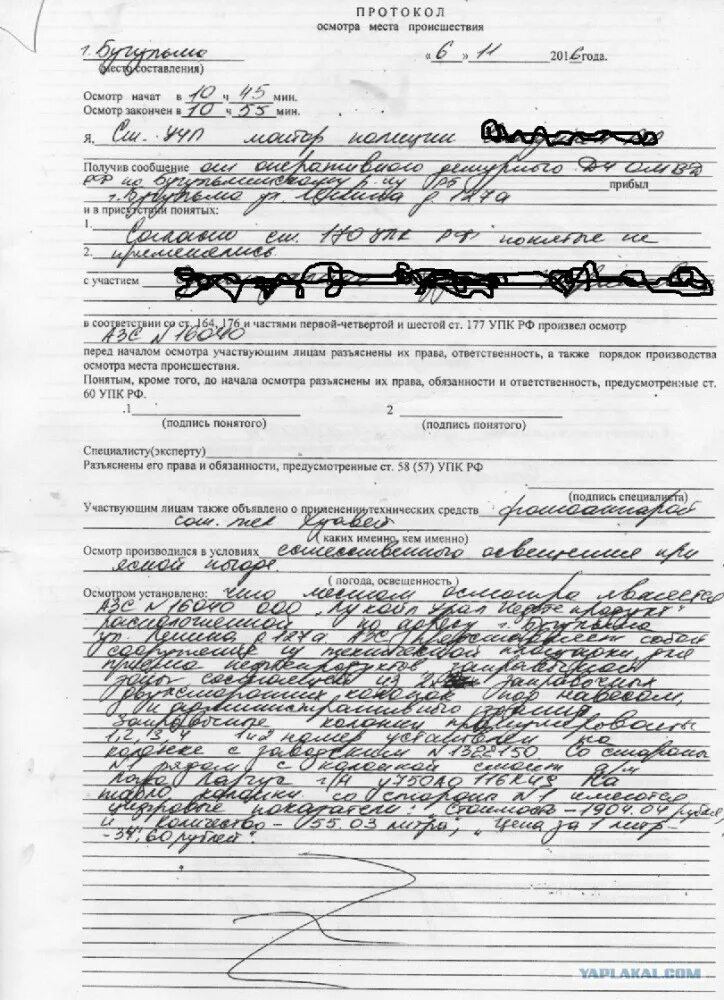 ПРОТОКОЛ
осмотра места происшествия
г. Бугульма « 6 » 11 2016 года.
(место составления)
Осмотр начат в 10 ч 45 мин.
Осмотр закончен в 10 ч 55 мин.
Я, Ст. УУП майор полиции
Получив сообщение от оперативного дежурного ДЧ ОМВД
РФ по Бугульминскому р-ну РТ прибыл
г. Бугульма ул. Ленина д 127а
и в присутствии понятых:
1. Согласно ст. 170 УПК РФ понятые не
2. применялись.
с участием
в соответствии со ст. 164, 176 и частями первой-четвертой и шестой ст. 177 УПК РФ произвел осмотр
АЗС N 16040
перед началом осмотра участвующим лицам разъяснены их права, ответственность, а также порядок производства
осмотра места происшествия.
Понятым, кроме того, до начала осмотра разъяснены их права, обязанности и ответственность, предусмотренные ст.
60 УПК РФ.
.1 2
(подпись понятого) (подпись понятого)
Специалисту(эксперту)
Разъяснены его права и обязанности, предусмотренные ст. 58 (57) УПК РФ
(подпись специалиста)
Участвующим лицам также объявлено о применении технических средств фотоаппарат
сот. тел Хуавей
(каких именно, кем именно)
Осмотр производился в условиях естественного освещения при
ясной погоде.
( погода, освещенность )
Осмотром установлено: что местом осмотра является
АЗС N 16040 ООО "Лукойл Урал Нефтепродукт"
расположенной по адресу г. Бугульма
ул. Ленина д 127а. АЗС представляет собой
сооружение из технической площадки для
приема нефтепродуктов заправочной
зоны состоящей из заправочных
двухсторонних колонок под навесом,
и административного здания.
Заправочные колонки пронумерованы
1, 2, 3, 4 1 и 2 номер установлены на
колонке с заводским N 1322150 Со стороны
N 1 рядом с колонкой стоит а/м
Лада Ларгус г/н 116 На
табло колонки со стороны N 1 имеются
цифровые показатели: "Стоимость – 1904.04 рубля,
и количество – 55.03 литра", "Цена за 1 литр-
- 34,60 рублей".
YAPLAKAL.COM